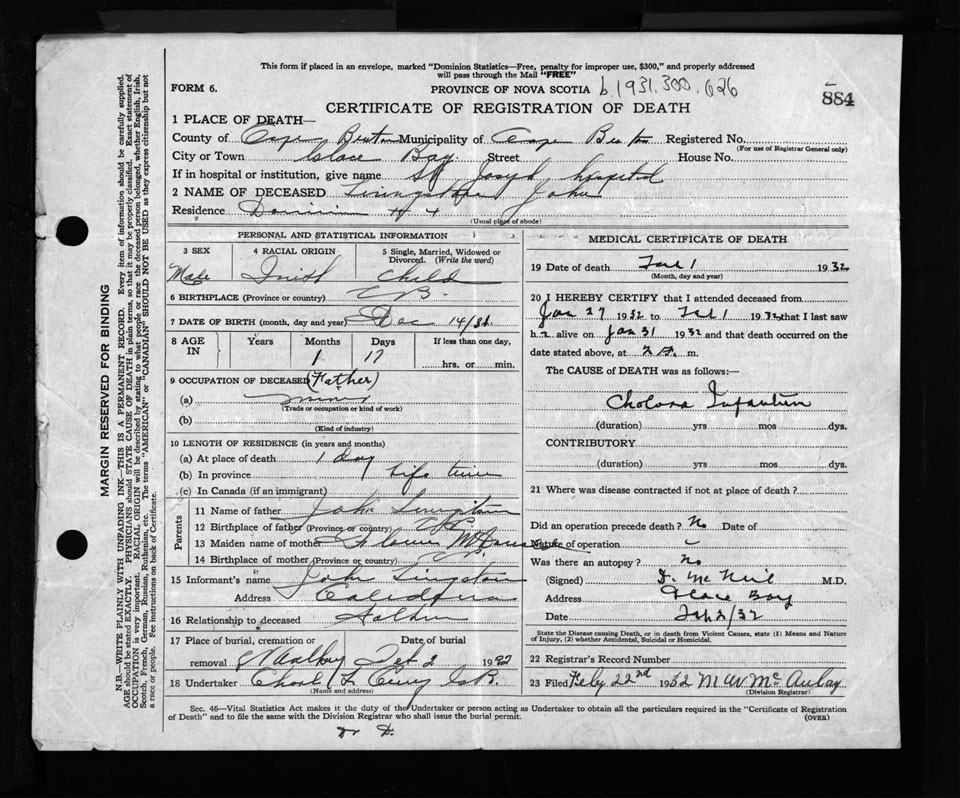 This form if placed in an envelope, marked "Dominion Statistics—Free, penalty for improper use, $300," and properly addressed
will pass through the Mail "FREE"
FORM 6.
PROVINCE OF NOVA SCOTIA b.1931.300.626
884
CERTIFICATE OF REGISTRATION OF DEATH
1 PLACE OF DEATH—
County of Cape Breton Municipality of Cape Breton Registered No.
(For use of Registrar General only)
City or Town Glace Bay Street House No.
If in hospital or institution, give name St Joseph hospital
2 NAME OF DECEASED Livingstone John
Residence Dominion # 4
(Usual place of abode)
PERSONAL AND STATISTICAL INFORMATION
3 SEX 4 RACIAL ORIGIN 5 Single, Married, Widowed or Divorced. (Write the word)
Male Irish Child
6 BIRTHPLACE (Province or country) C B.
7 DATE OF BIRTH (month, day and year) Dec 14/31
8 AGE IN Years Months Days If less than one day,
1 17 hrs. or min.
9 OCCUPATION OF DECEASED (Father)
(a) miner
(Trade or occupation or kind of work)
(b)
(Kind of industry)
10 LENGTH OF RESIDENCE (in years and months)
(a) At place of death 1 day
(b) In province Life time
(c) In Canada (if an immigrant)
Parents
11 Name of father John
12 Birthplace of father (Province or country) C B.
13 Maiden name of mother
14 Birthplace of mother (Province or country)
15 Informant's name John
Address Caledonia
16 Relationship to deceased Father
17 Place of burial, cremation or Date of burial
removal Feb 2 1932
18 Undertaker
(Name and address)
MEDICAL CERTIFICATE OF DEATH
19 Date of death Feb 1 1932
(Month, day and year)
20 I HEREBY CERTIFY that I attended deceased from
Jan 27 1932 to Feb 1 1932 that I last saw
h alive on Jan 31 1932 and that death occurred on the
date stated above, at m.
The CAUSE of DEATH was as follows:—
Cholera Infantum
(duration) yrs mos dys.
CONTRIBUTORY
(duration) yrs mos dys.
21 Where was disease contracted if not at place of death?
Did an operation precede death? No Date of
Nature of operation
Was there an autopsy? No
(Signed) McNeil M.D.
Address Glace Bay
Date Feb 2/32
State the Disease causing Death, or in death from Violent Causes, state (1) Means and Nature
of Injury, (2) whether Accidental, Suicidal or Homicidal.
22 Registrar's Record Number
23 Filed Feby 22nd 1932 M W McAulay
(Division Registrar)
Sec. 46—Vital Statistics Act makes it the duty of the Undertaker or person acting as Undertaker to obtain all the particulars required in the "Certificate of Registration
of Death" and to file the same with the Division Registrar who shall issue the burial permit. (OVER)
MARGIN RESERVED FOR BINDING
N.B.—WRITE PLAINLY WITH UNFADING INK—THIS IS A PERMANENT RECORD. Every item of information should be carefully supplied.
AGE should be stated EXACTLY. PHYSICIANS should STATE CAUSE OF DEATH in plain terms, so that it may be properly classified. Exact statement of
OCCUPATION is very important. RACIAL ORIGIN will be described by stating to what people or race the deceased person belonged, whether English, Irish,
Scotch, French, German, Russian, Ruthenian, etc. The terms "AMERICAN" or "CANADIAN" SHOULD NOT BE USED as they express citizenship but not
a race or people. See instructions on back of Certificate.